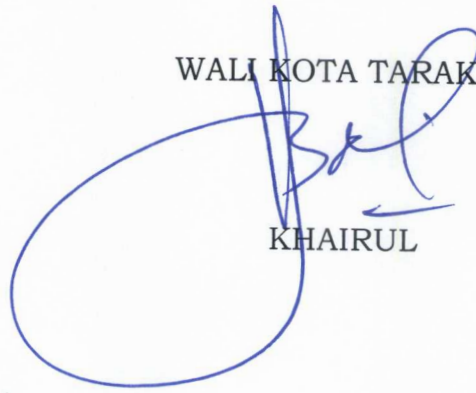 WALI KOTA TARAK
KHAIRUL